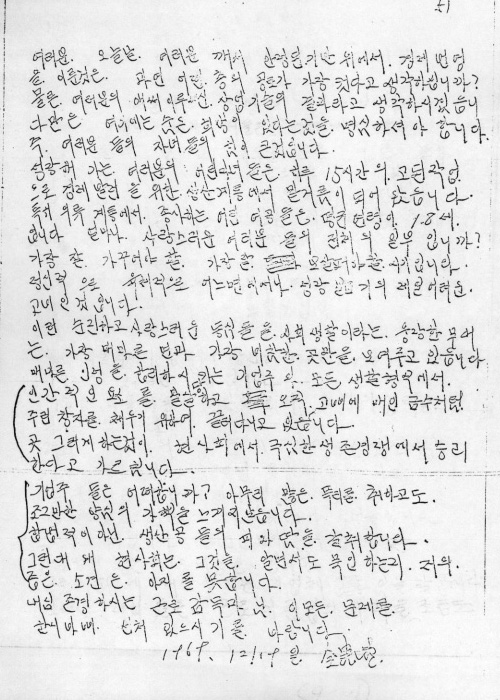 51
여러분. 오늘날. 여러분 께서 안정된 기반 위에서. 경제 번영
을 이룬것은. 과연 어떤. 층의 공로가 가장 컷다고 생각하십니까?
물론. 여러분의 애써 이루신. 상업기술의 결과라고 생각하시겠읍니
다만은 여기에는 숨은. 희생이 있다는것을. 명심하셔야 합니다.
즉. 여러분 들의 자녀들의 힘이 큰것입니다.
성장해 가는. 여러분의 어린자녀들은. 하루 15시간의 고된작업
으로 경제 발전 을 위한. 생산계통 에서 밑거름이 되어 왔읍니다.
특히 의류 계통에서. 종사하는 어린 여공들은. 평균 연령이. 18세.
입니다 얼마나. 사랑스러운 여러분 들의 전체의 일부 입니까?
가장 잘. 가꾸어야 할. 가장 잘. 보살펴야 할. 시기입니다.
정신적 으로 육체적으로 어느면에서나. 성장 기의 제일 어려운.
고비인것 입니다.
이런 순진하고 사랑스러운 동심들을 사회생활이라는. 웅장한 무대
는. 가장 메마른 면과 가장 비참한. 곳만을. 보여주고 있읍니다.
메마른 인정을. 합리화시키는 기업주와. 모든 생활형식에서.
인간적인 요소를 말살당하고 오직. 고삐에 매인 금수처럼
주린 창자를. 채우기 위하여. 끌려다니고 있읍니다.
곳 그렇게 하는것이. 현사회에서. 극심한 생존경쟁에서 승리
한다고 가르칩니다.
기업주 들은 어떠합니까? 아무리 많은. 폭리를. 취하고도.
조그만한 양심의 가책을 느끼지않읍니다.
합법적이 아닌. 생산공 들의 피와 땀을. 갈취합니다.
그런데 왜 현사회는. 그것을. 알면서도 묵인 하는지. 저의.
좁은 소견은. 알지를 못합니다.
내심 존경하시는 근로감독관님. 이모든. 문제를.
한시바삐. 선처 있으시기를. 바랍니다.
1969. 12월 19일